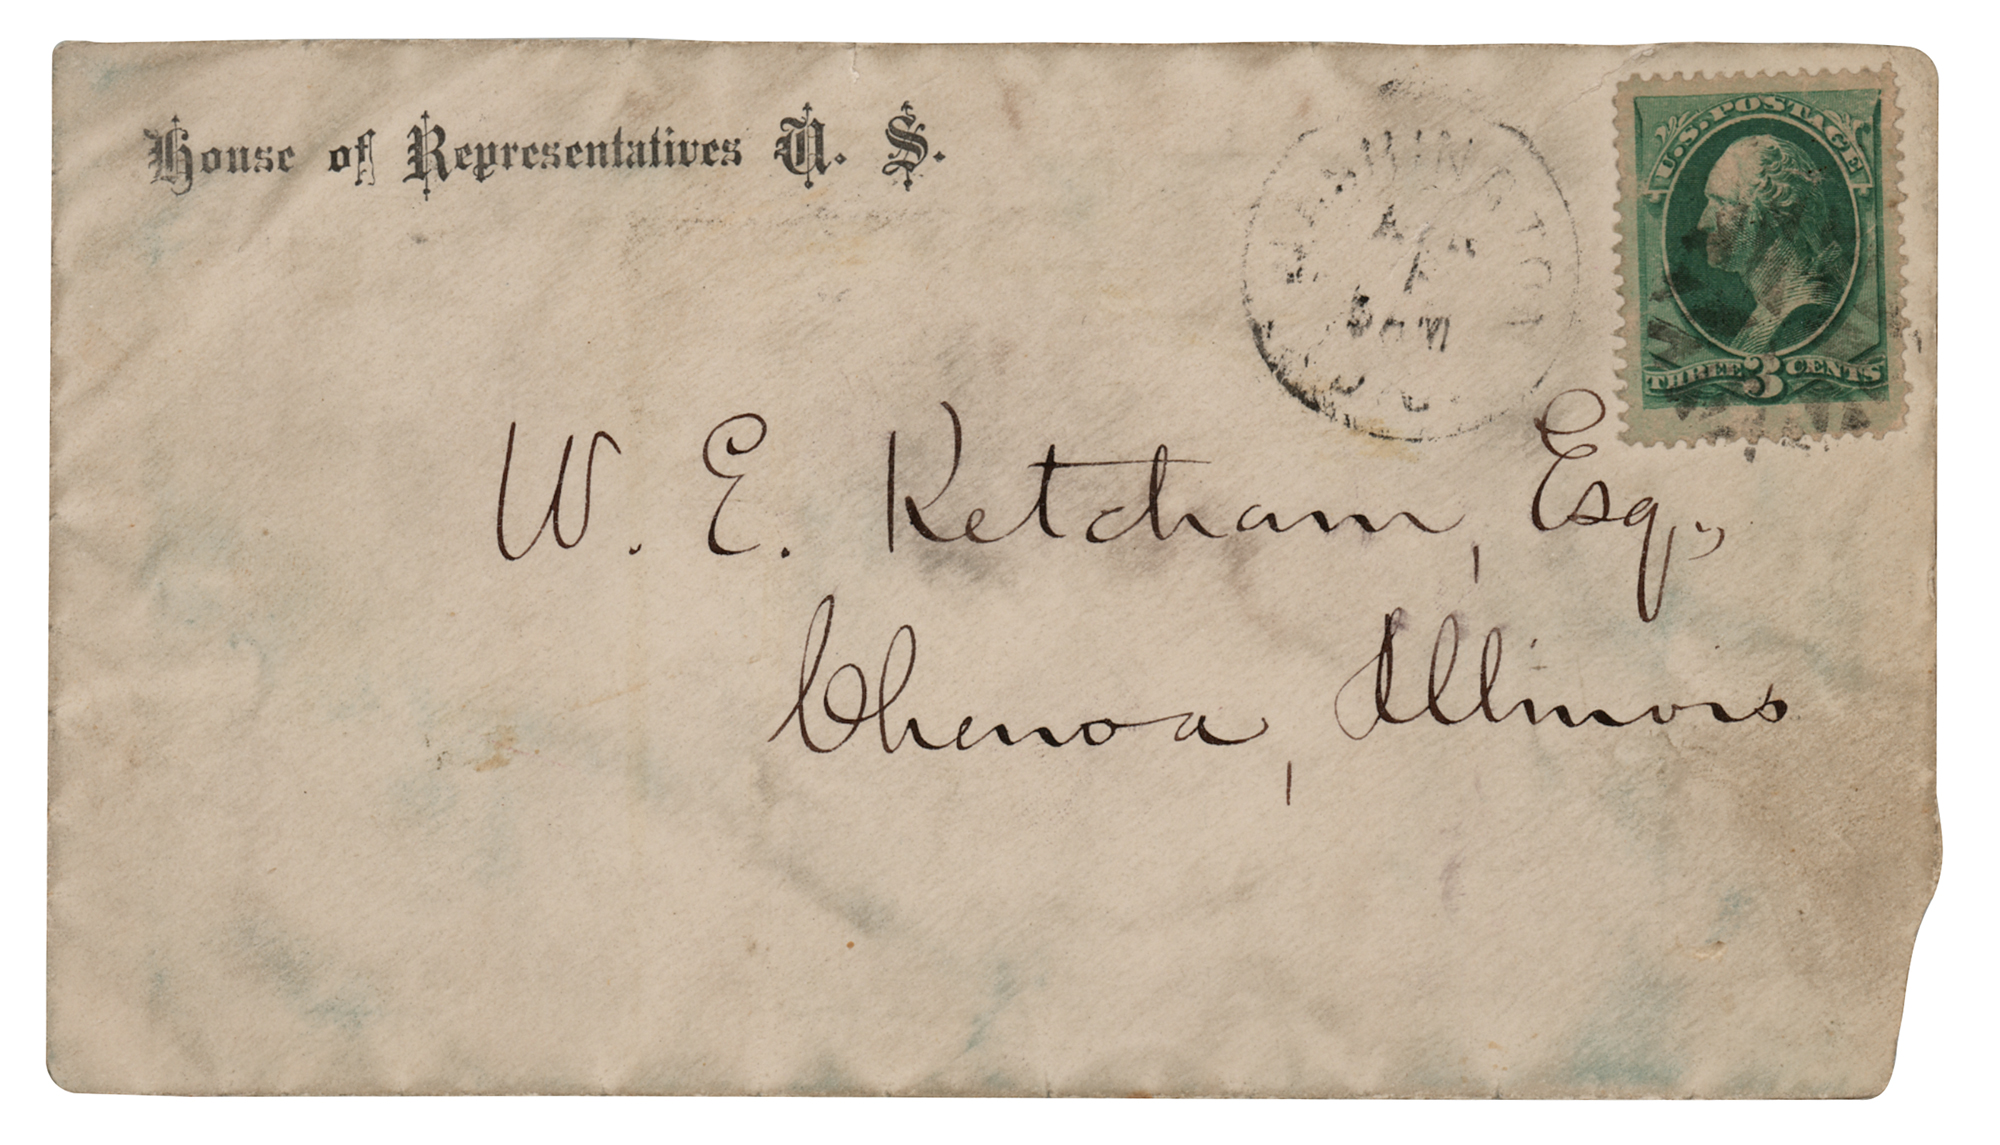 House of Representatives U. S.
WASHINGTON
U.S. POSTAGE
THREE 3 CENTS
W. E. Ketcham, Esq.,
Chenoa, Illinois